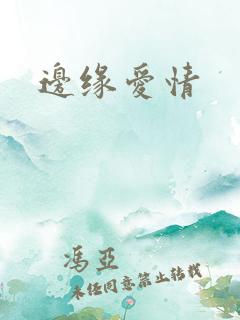 邊缘爱情
冯亚
未经同意禁止转载